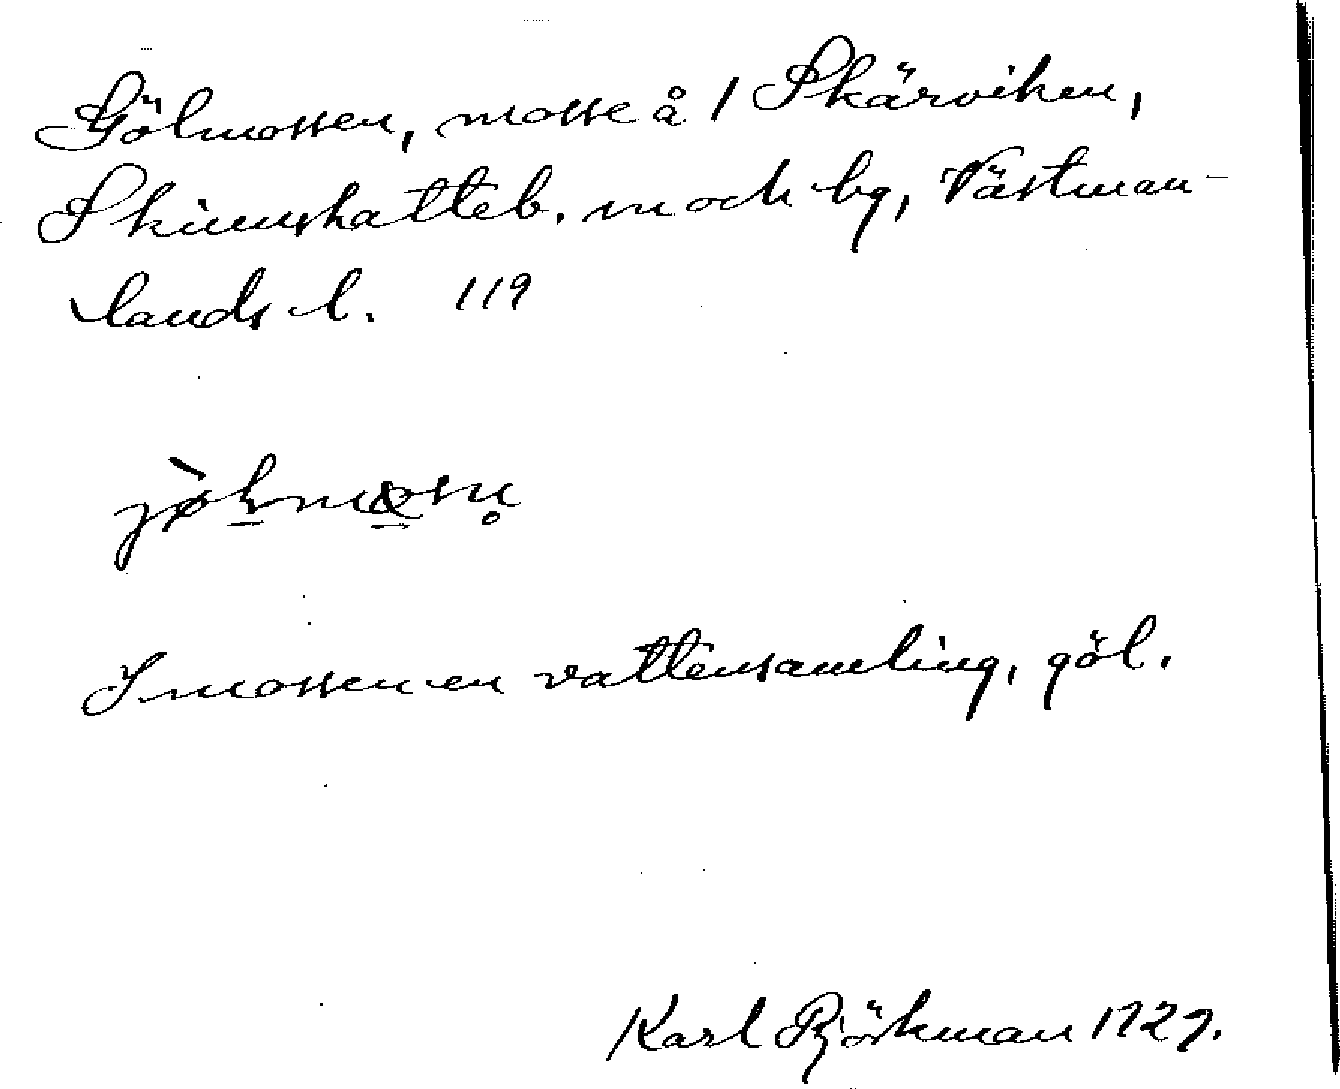 Gölmossen, mosse å 1 Skärviken,
Skinnskatteb. sn och bg, Västman-
lands l. 119
I mossen en vattensamling, göl.
Karl Björkman 1927.